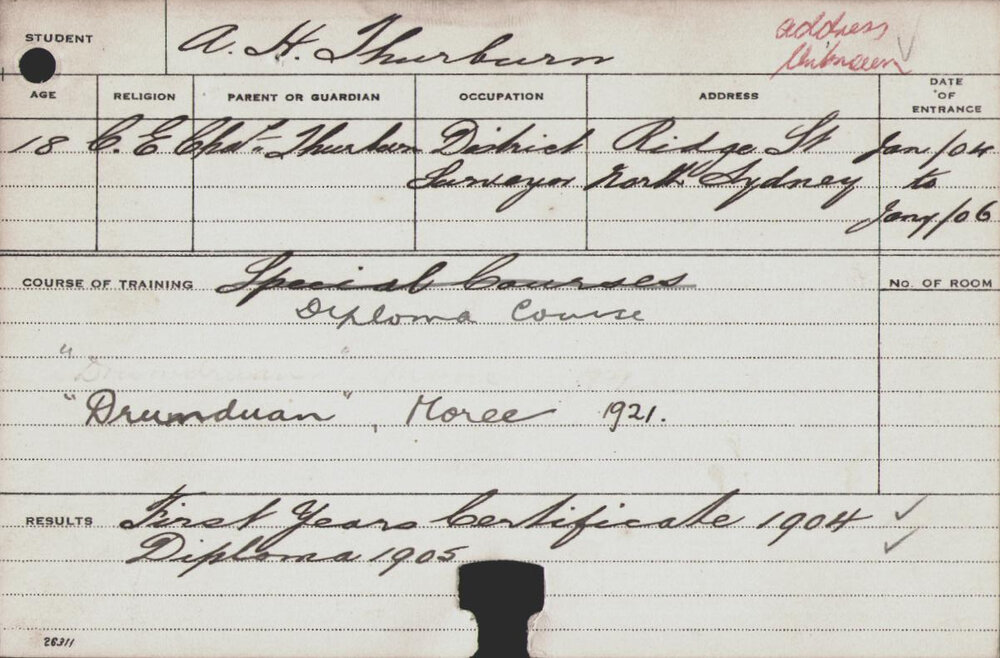 STUDENT A. H. Thurburn address
Unknown
AGE RELIGION PARENT OR GUARDIAN OCCUPATION ADDRESS DATE OF ENTRANCE
18 C. E Chas. Thurburn District Ridge St Jan/04
Surveyor North Sydney to
Jany/06
COURSE OF TRAINING Special Courses NO. OF ROOM
Diploma Course
"Drumduan", Moree 1921.
RESULTS First Years Certificate 1904
Diploma 1905
26311